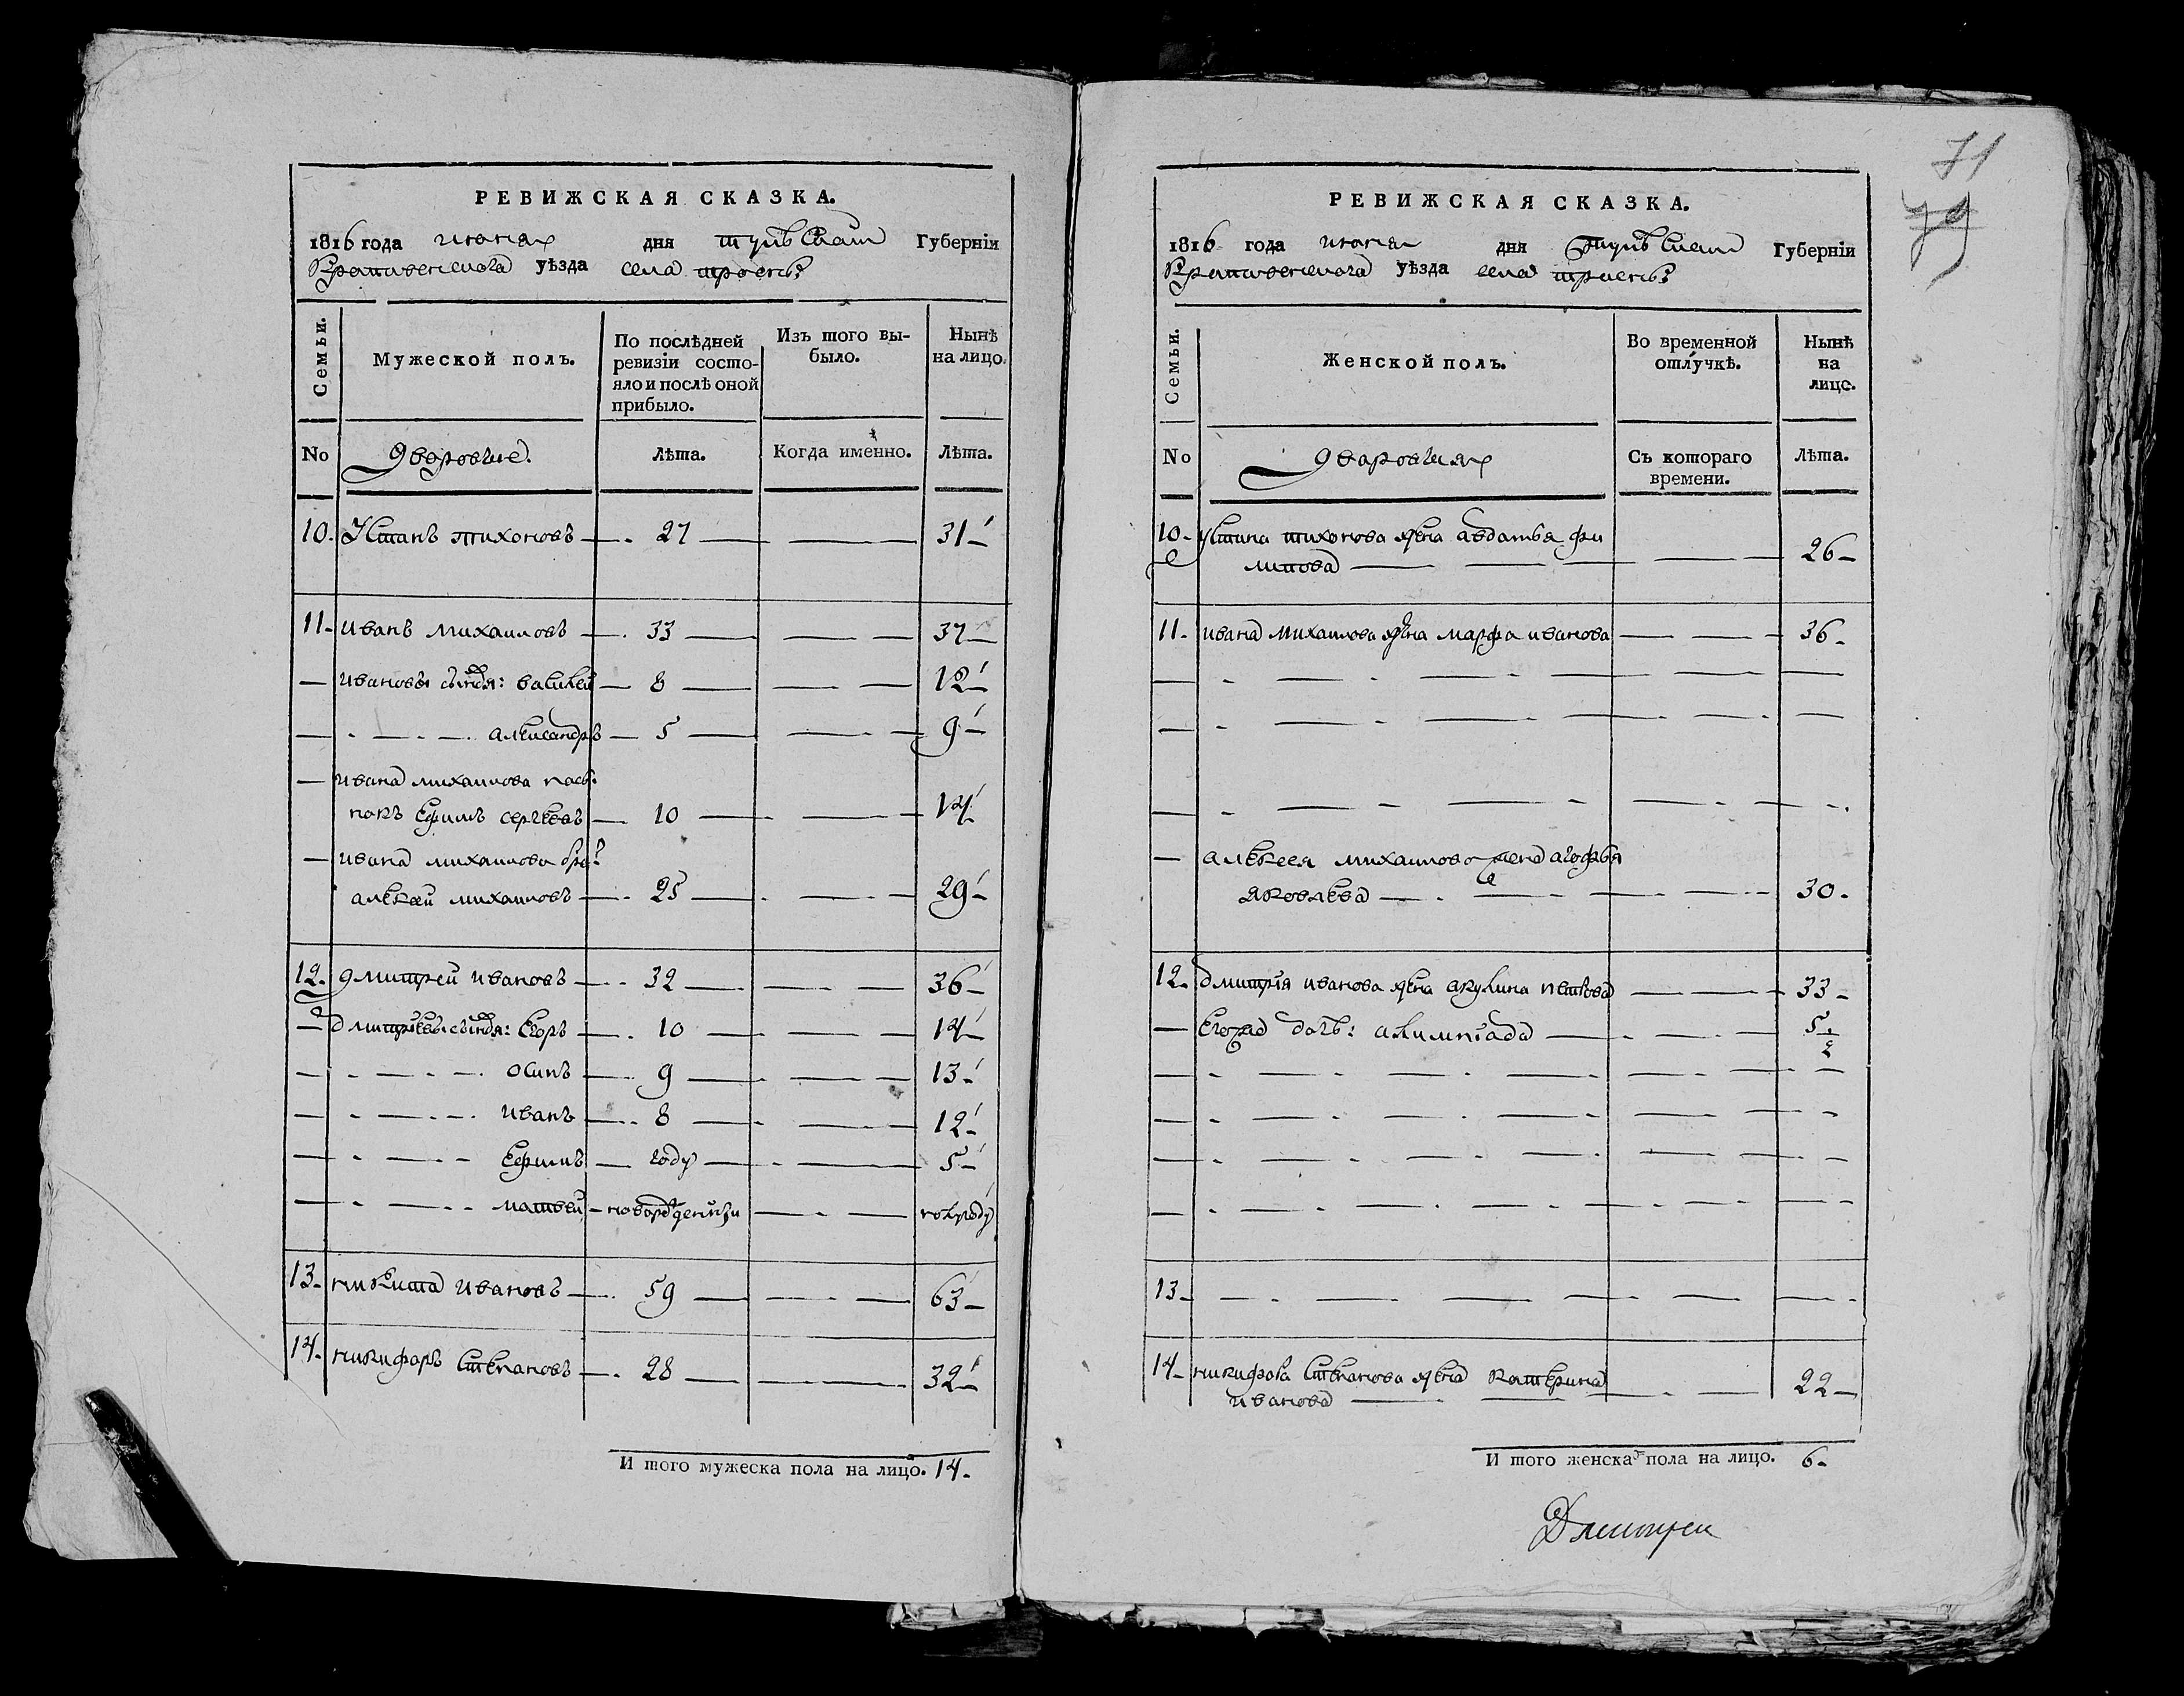 РЕВИЖСКАЯ СКАЗКА.
1816 года июня дня тульской Губерніи
Крапивенскога уѣзда села троены
Семьи.
Мужеской полъ.
По послѣдней ревизіи состояло и послѣ оной прибыло.
Изъ того выбыло.
Нынѣ на лицо.
No
дворовые.
лѣта.
Когда именно.
Лѣта.
10. Устинъ тихоновъ 27 31
11. иванъ михаиловъ 33 37
ивановы сыновья: василей 8 12
александръ 5 9
ивана михаилова пасы
нокъ Ефимъ сергѣевъ 10 14
ивана михаилова братъ
алексей михаиловъ 25 29
12. дмитрей ивановъ 32 36
дмитриевы сыновья: Егоръ 10 14
осипъ 9 13
иванъ 8 12
Ефимъ году 5
матвей полугоду
13. никита ивановъ 59 63
14. никифаръ степановъ 28 32
И того мужеска пола на лицо. 14.
71
79
РЕВИЖСКАЯ СКАЗКА.
1816 года июня дня тульской Губерніи
Крапивенскога уѣзда села троены
Семьи.
Женской полъ.
Во временной отлучкѣ.
Нынѣ на лицо.
No
дворовыя
Съ котораго времени.
Лѣта.
10. устина тихонова жена авдотья фи
липова 26
11. ивана михаилова жена марфа иванова 36
алексея михаилова жена агофья
яковлева 30
12. дмитрія иванова жена акулина петрова 33
Егожа дочь: алимпіада 5 1/2
13
14 никифора степанова жена катерина
иванова 22
И того женска пола на лицо. 6
Дмитрей